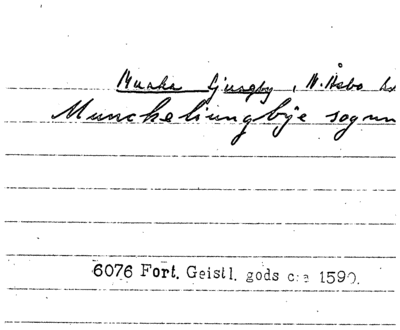 Munka Ljungby, N. Åsbo
Munckeliungbÿe sogn
6076 Fort. Geistl. gods c:a 1590.